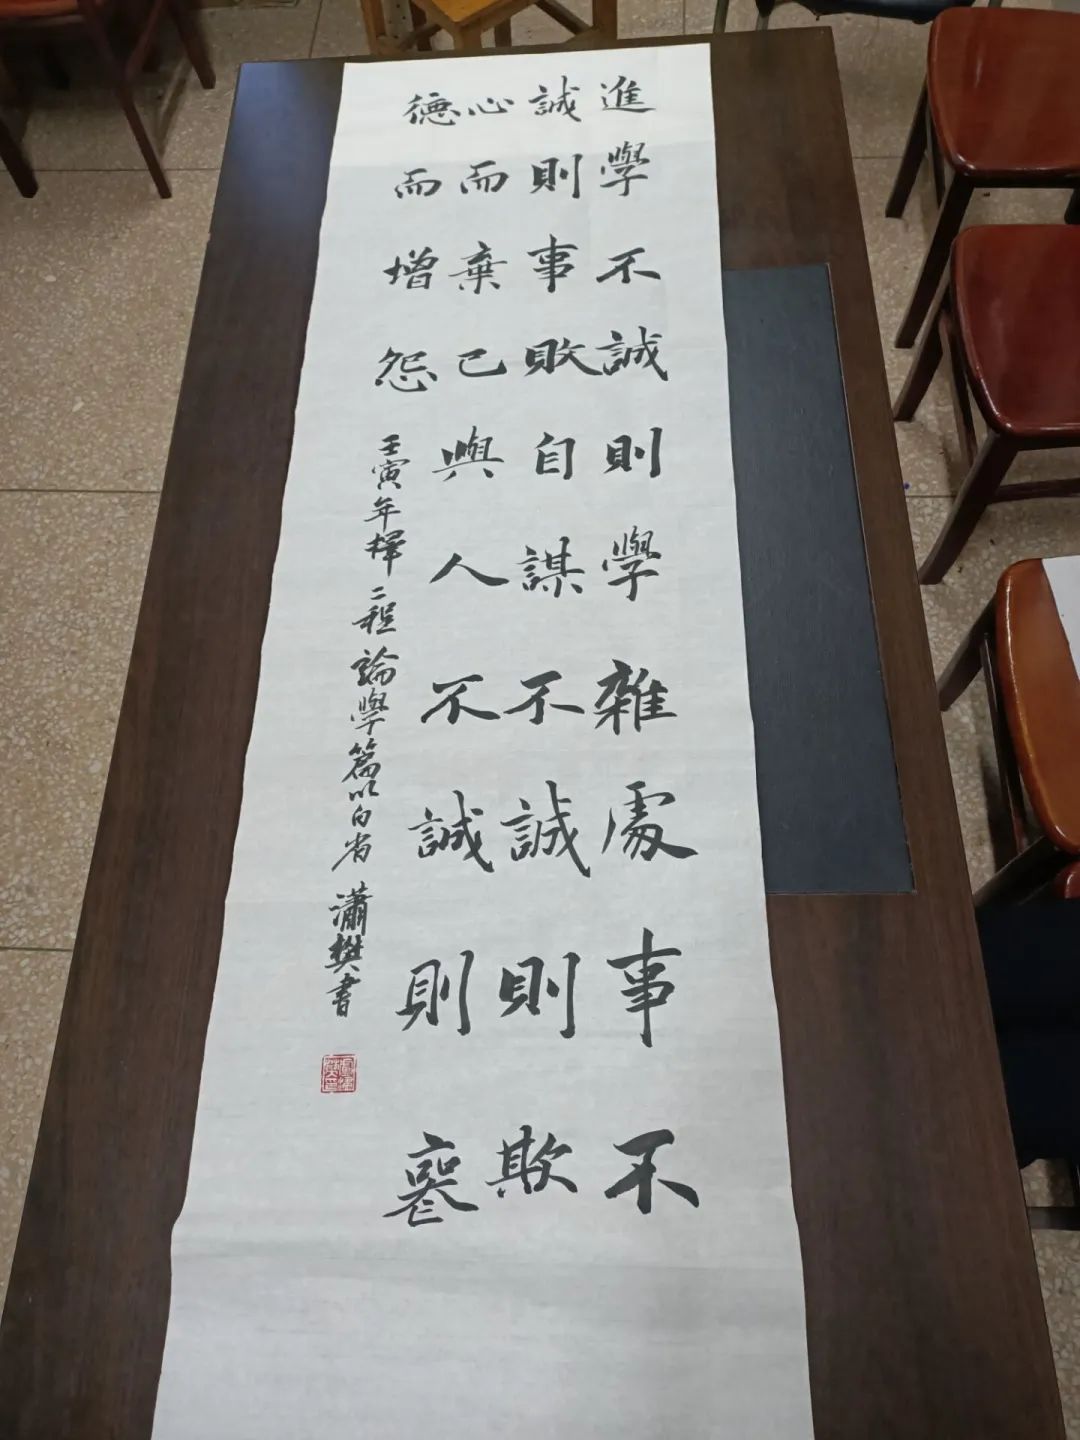 進學不誠則學雜處事不
誠則事敗自謀不誠則欺
心而棄己與人不誠則喪
德而增怨
壬寅年擇二程論學篇以自省 瀟樊書